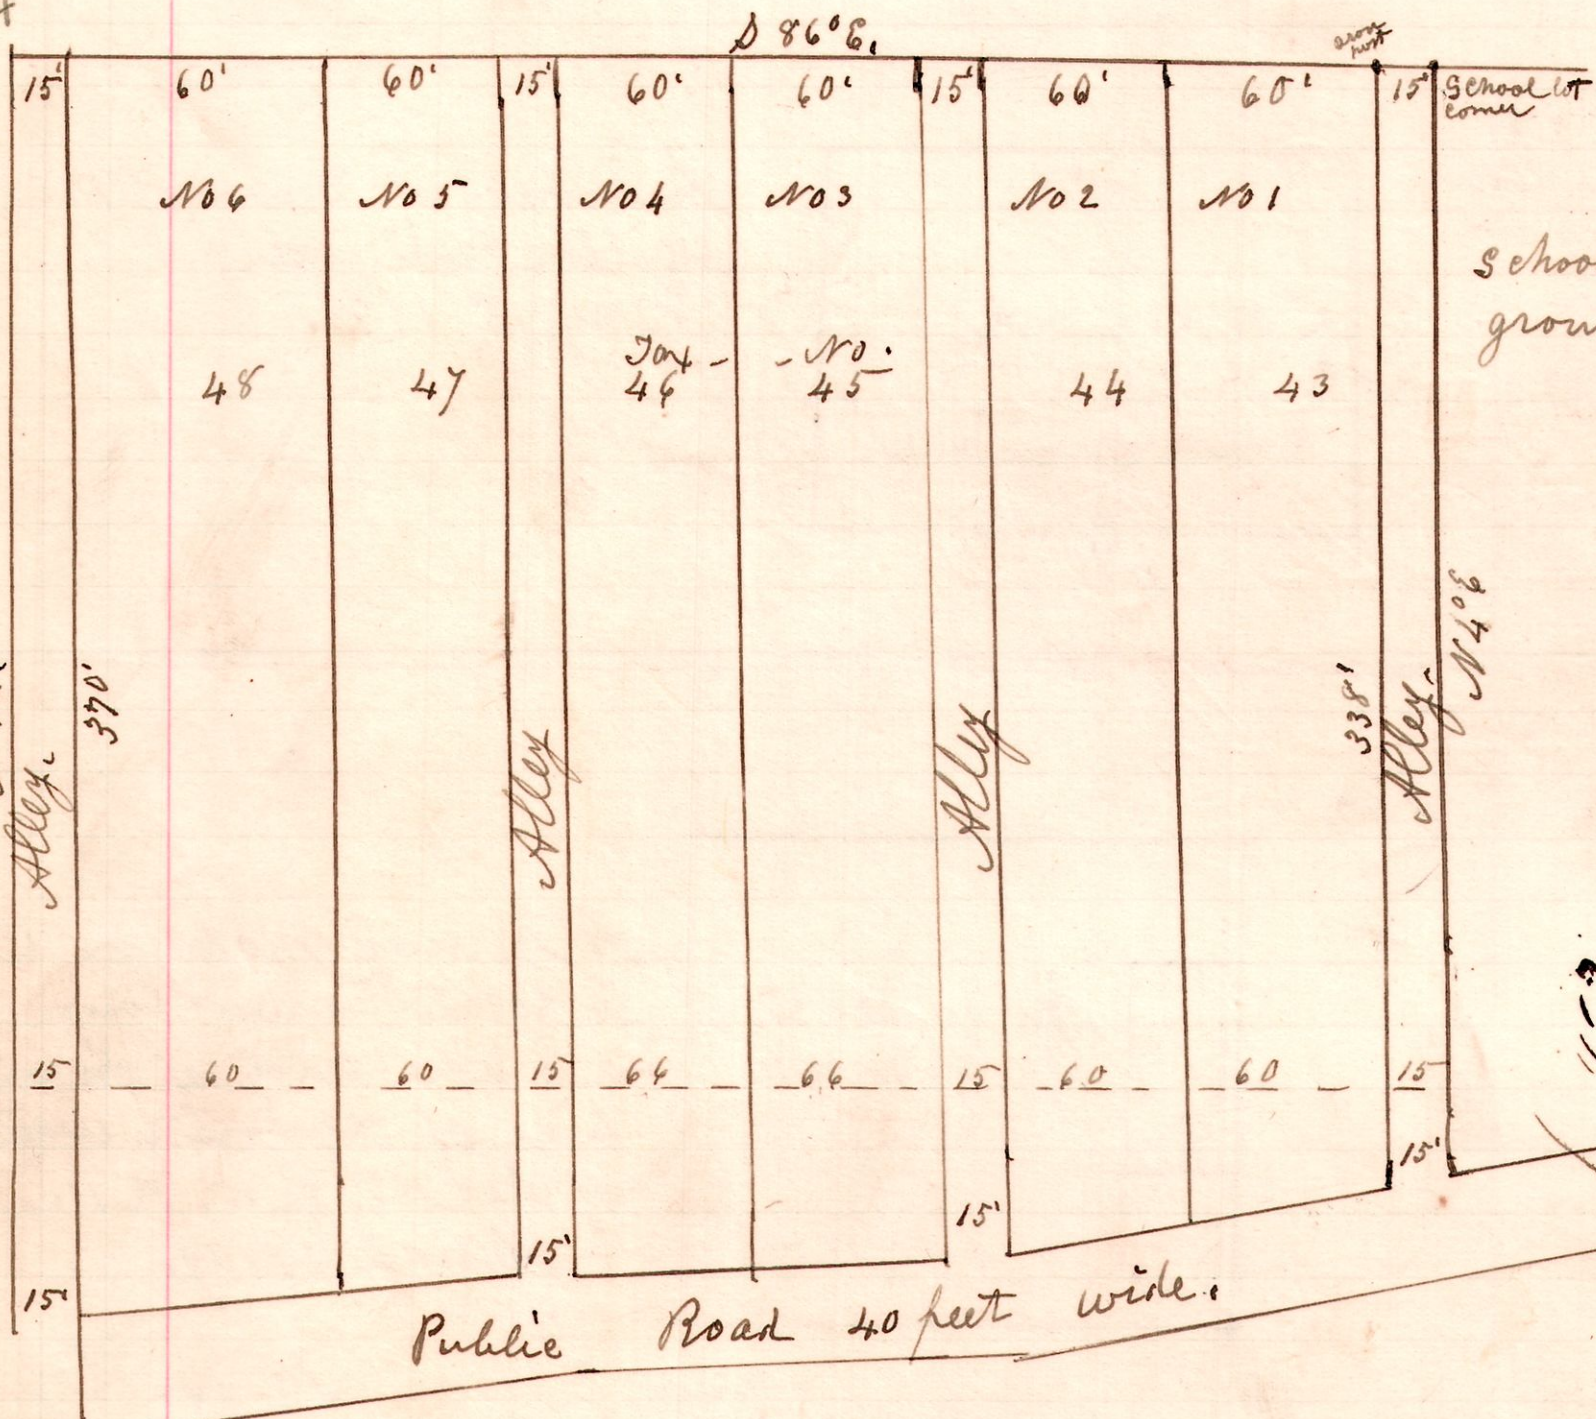 S 86° E.
15' 60' 60' 15' 60' 60' 15' 60' 60' 15' School lot
corner
No 6 No 5 No 4 No 3 No 2 No 1
Tax - - No.
48 47 46 45 44 43
370'
338'
N 4° E
Alley.
Alley
Alley
Alley.
15 60 60 15 66 66 15 60 60 15
15'
15'
15'
15'
Public Road 40 feet wide.